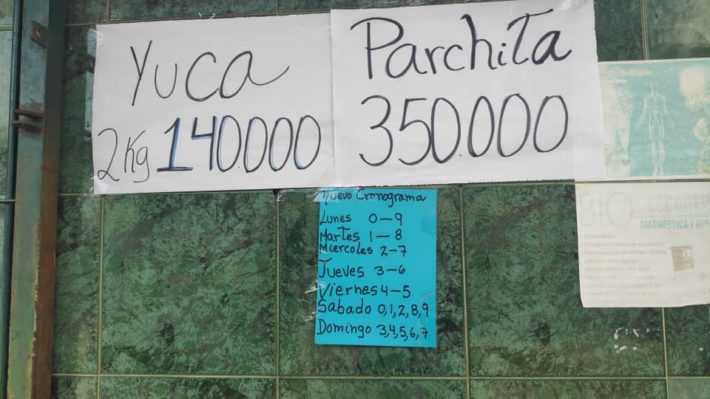 Yuca
2Kg 140000
Parchita
350.000
Nuevo Cronograma
Lunes 0-9
Martes 1-8
Miercoles 2-7
Jueves 3-6
Viernes 4-5
Sabado 0,1,2,8,9
Domingo 3,4,5,6,7